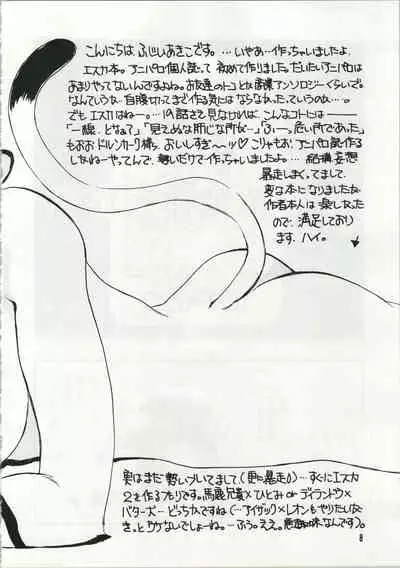 こんにちは ふじいあきこです。…いやあ…作っちゃいましたよ
エスカ本。アニパロ個人誌って 初めて作りました。だいたいアニパロは
あまりやってないんですよね。お友達のトコとか 商業アンソロジーくらいで。
なんていうか 自腹切ってまで作る気にはならなかったっていうのか…。
でも エスカはねー…。19話さえ見なければ こんなコトには ―――
「一線、どなって」「見えぬな肝じな所が…」「ふー。危い所であった」
もおお ドルンカーク様、おいしすぎ〜ッ♡ こりゃもお、アニパロ誌作る
しかねーやってんで、勢いだけで作っちゃいましたよ。…結構妄想
暴走しまくってまして
変な本になりましたが
作者本人は楽しかった
ので、満足しており
ます。ハイ。
実はまだ 勢いづいてまして(更に暴走♪)…すぐにエスカ
2を作るつもりです。馬鹿兄貴×ひとみ or ディランドゥ×
バターズ…どっちかですね(…アイザック×レオンもやりたいしなぞ
き。とウケないでしょーね。…ふぅ。ええ。悪趣味なんです)。
8